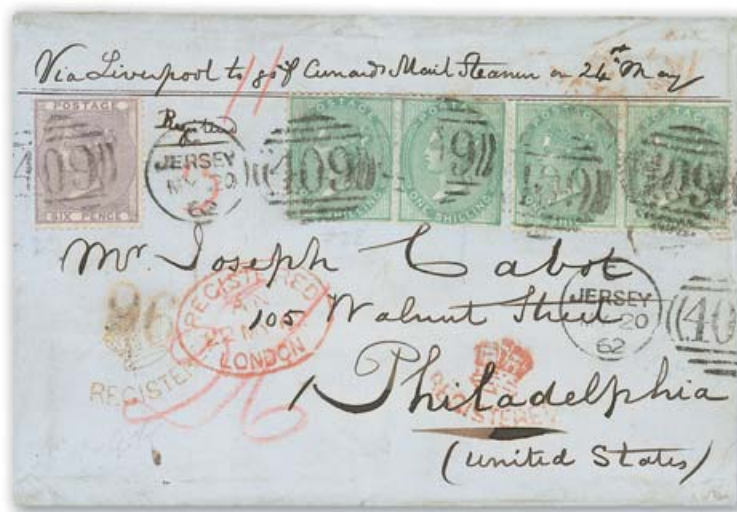 Via Liverpool to go p Cunard Mail Steamer on 24th May
11
POSTAGE
SIX PENCE
409
Registered
JERSEY
MY 20
62
POSTAGE
ONE SHILLING
409
POSTAGE
ONE SHILLING
409
POSTAGE
ONE SHILLING
409
POSTAGE
ONE SHILLING
409
Mr Joseph Cabot
105 Walnut Street
Philadelphia
(United States)
JERSEY
MY 20
62
40
96
REGISTERED
REGISTERED
LONDON
REGISTERED